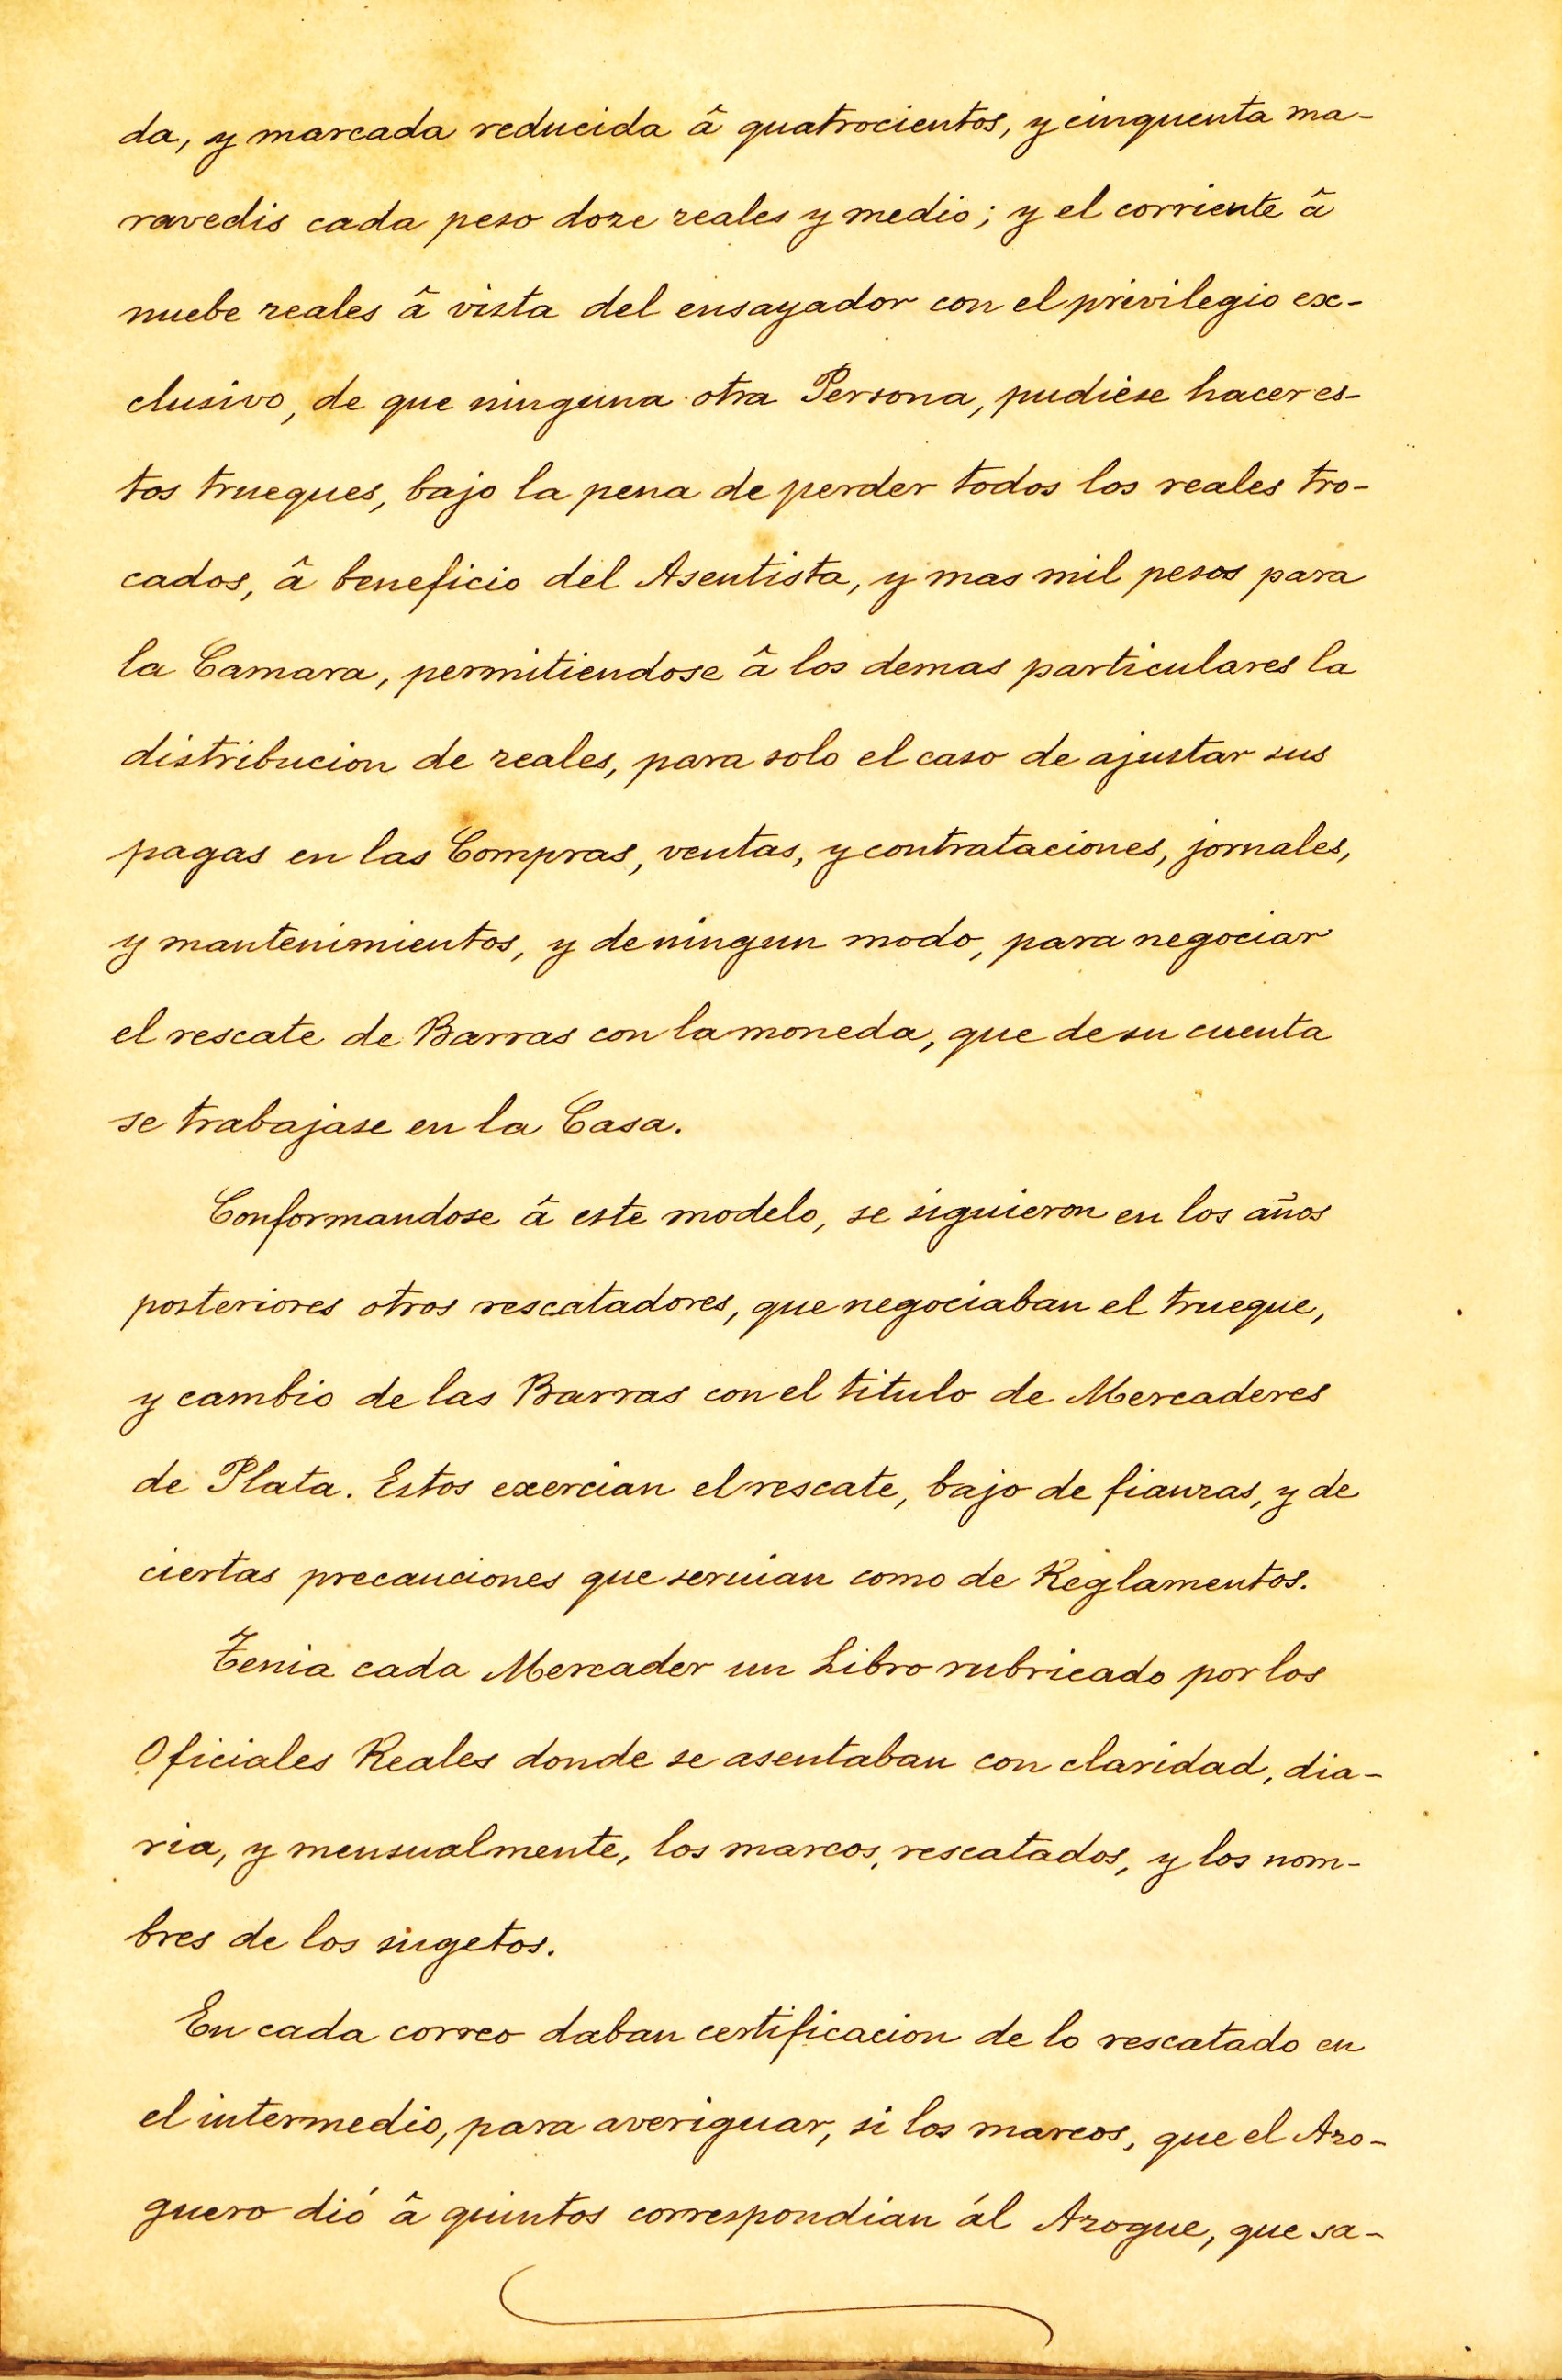 da, y marcada reducida â quatrocientos, y cinquenta ma-
ravedis cada peso doze reales y medio; y el corriente â
nuebe reales â vista del ensayador con el privilegio ex-
clusivo, de que ninguna otra Persona, pudiese hacer es-
tos trueques, bajo la pena de perder todos los reales tro-
cados, â beneficio del Asentista, y mas mil pesos para
la Camara, permitiendose â los demas particulares la
distribucion de reales, para solo el caso de ajustar sus
pagas en las Compras, ventas, y contrataciones, jornales,
y mantenimientos, y de ningun modo, para negociar
el rescate de Barras con la moneda, que de su cuenta
se trabajase en la Casa.
Conformandose â este modelo, se siguieron en los años
posteriores otros rescatadores, que negociaban el trueque,
y cambio de las Barras con el titulo de Mercaderes
de Plata. Estos exercian el rescate, bajo de fianzas, y de
ciertas precauciones que seruian como de Reglamentos.
Tenia cada Mercader un Libro rubricado por los
Oficiales Reales donde se asentaban con claridad, dia-
ria, y mensualmente, los marcos, rescatados, y los nom-
bres de los sugetos.
En cada correo daban certificacion de lo rescatado en
el intermedio, para averiguar, si los marcos, que el Azo-
guero dió â quintos correspondian ál Azogue, que sa-